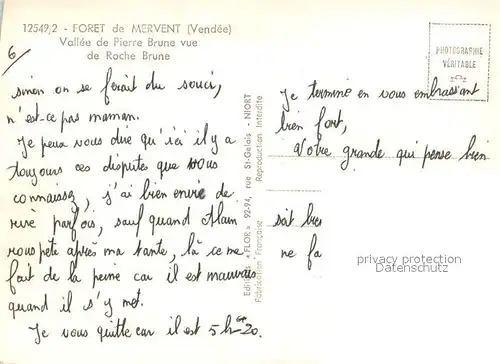 12549,2 - FORET de MERVENT (Vendée)
Vallée de Pierre Brune vue
de Roche Brune
6
PHOTOGRAPHIE
VÉRITABLE
sinon on se ferait du souci,
n'est-ce pas maman.
Je peux vous dire qu'ici il y a
toujours ces disputes que vous
connaissez, j'ai bien envie de
rire parfois, sauf quand Alain
rouspète après ma tante, là ça me
fait de la peine car il est mauvais
quand il s'y met.
Je vous quitte car il est 5h 20.
Editions « FLOR » 92-94, rue St-Gelais - NIORT
Fabrication Française Reproduction Interdite
Je termine en vous embrassant
bien fort,
Votre grande qui pense bien
soit bien
ne fa
privacy protection
Datenschutz